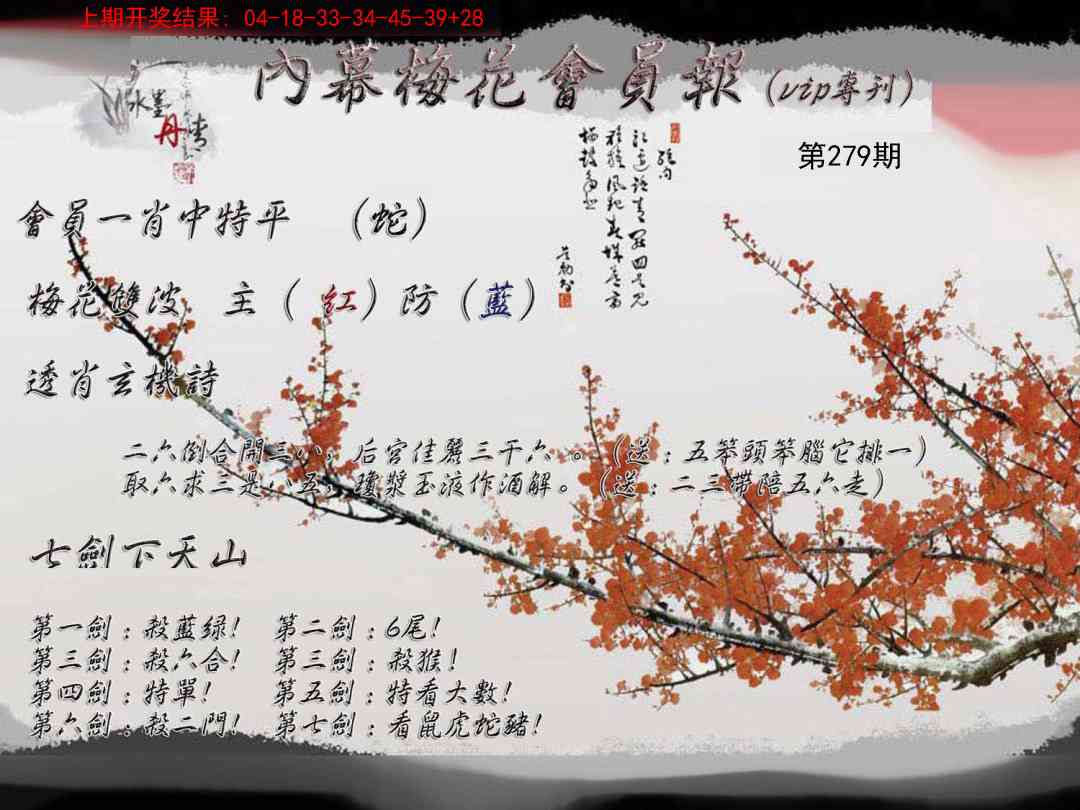 上期开奖结果: 04-18-33-34-45-39+28
內幕梅花會員報(vip專刊)
水墨丹青
第279期
會員一肖中特平 (蛇)
梅花雙波 主(紅)防(藍)
透肖玄機詩
二六倒合開三八，后宮佳麗三千六。(送:五笨頭笨腦它排一)
取六求三是八五，瓊漿玉液作酒解。(送:二三帶陪五六走)
七劍下天山
第一劍:殺藍绿! 第二劍:6尾!
第三劍:殺六合! 第三劍:殺猴!
第四劍:特單! 第五劍:特看大數!
第六劍:殺二門! 第七劍:看鼠虎蛇豬!